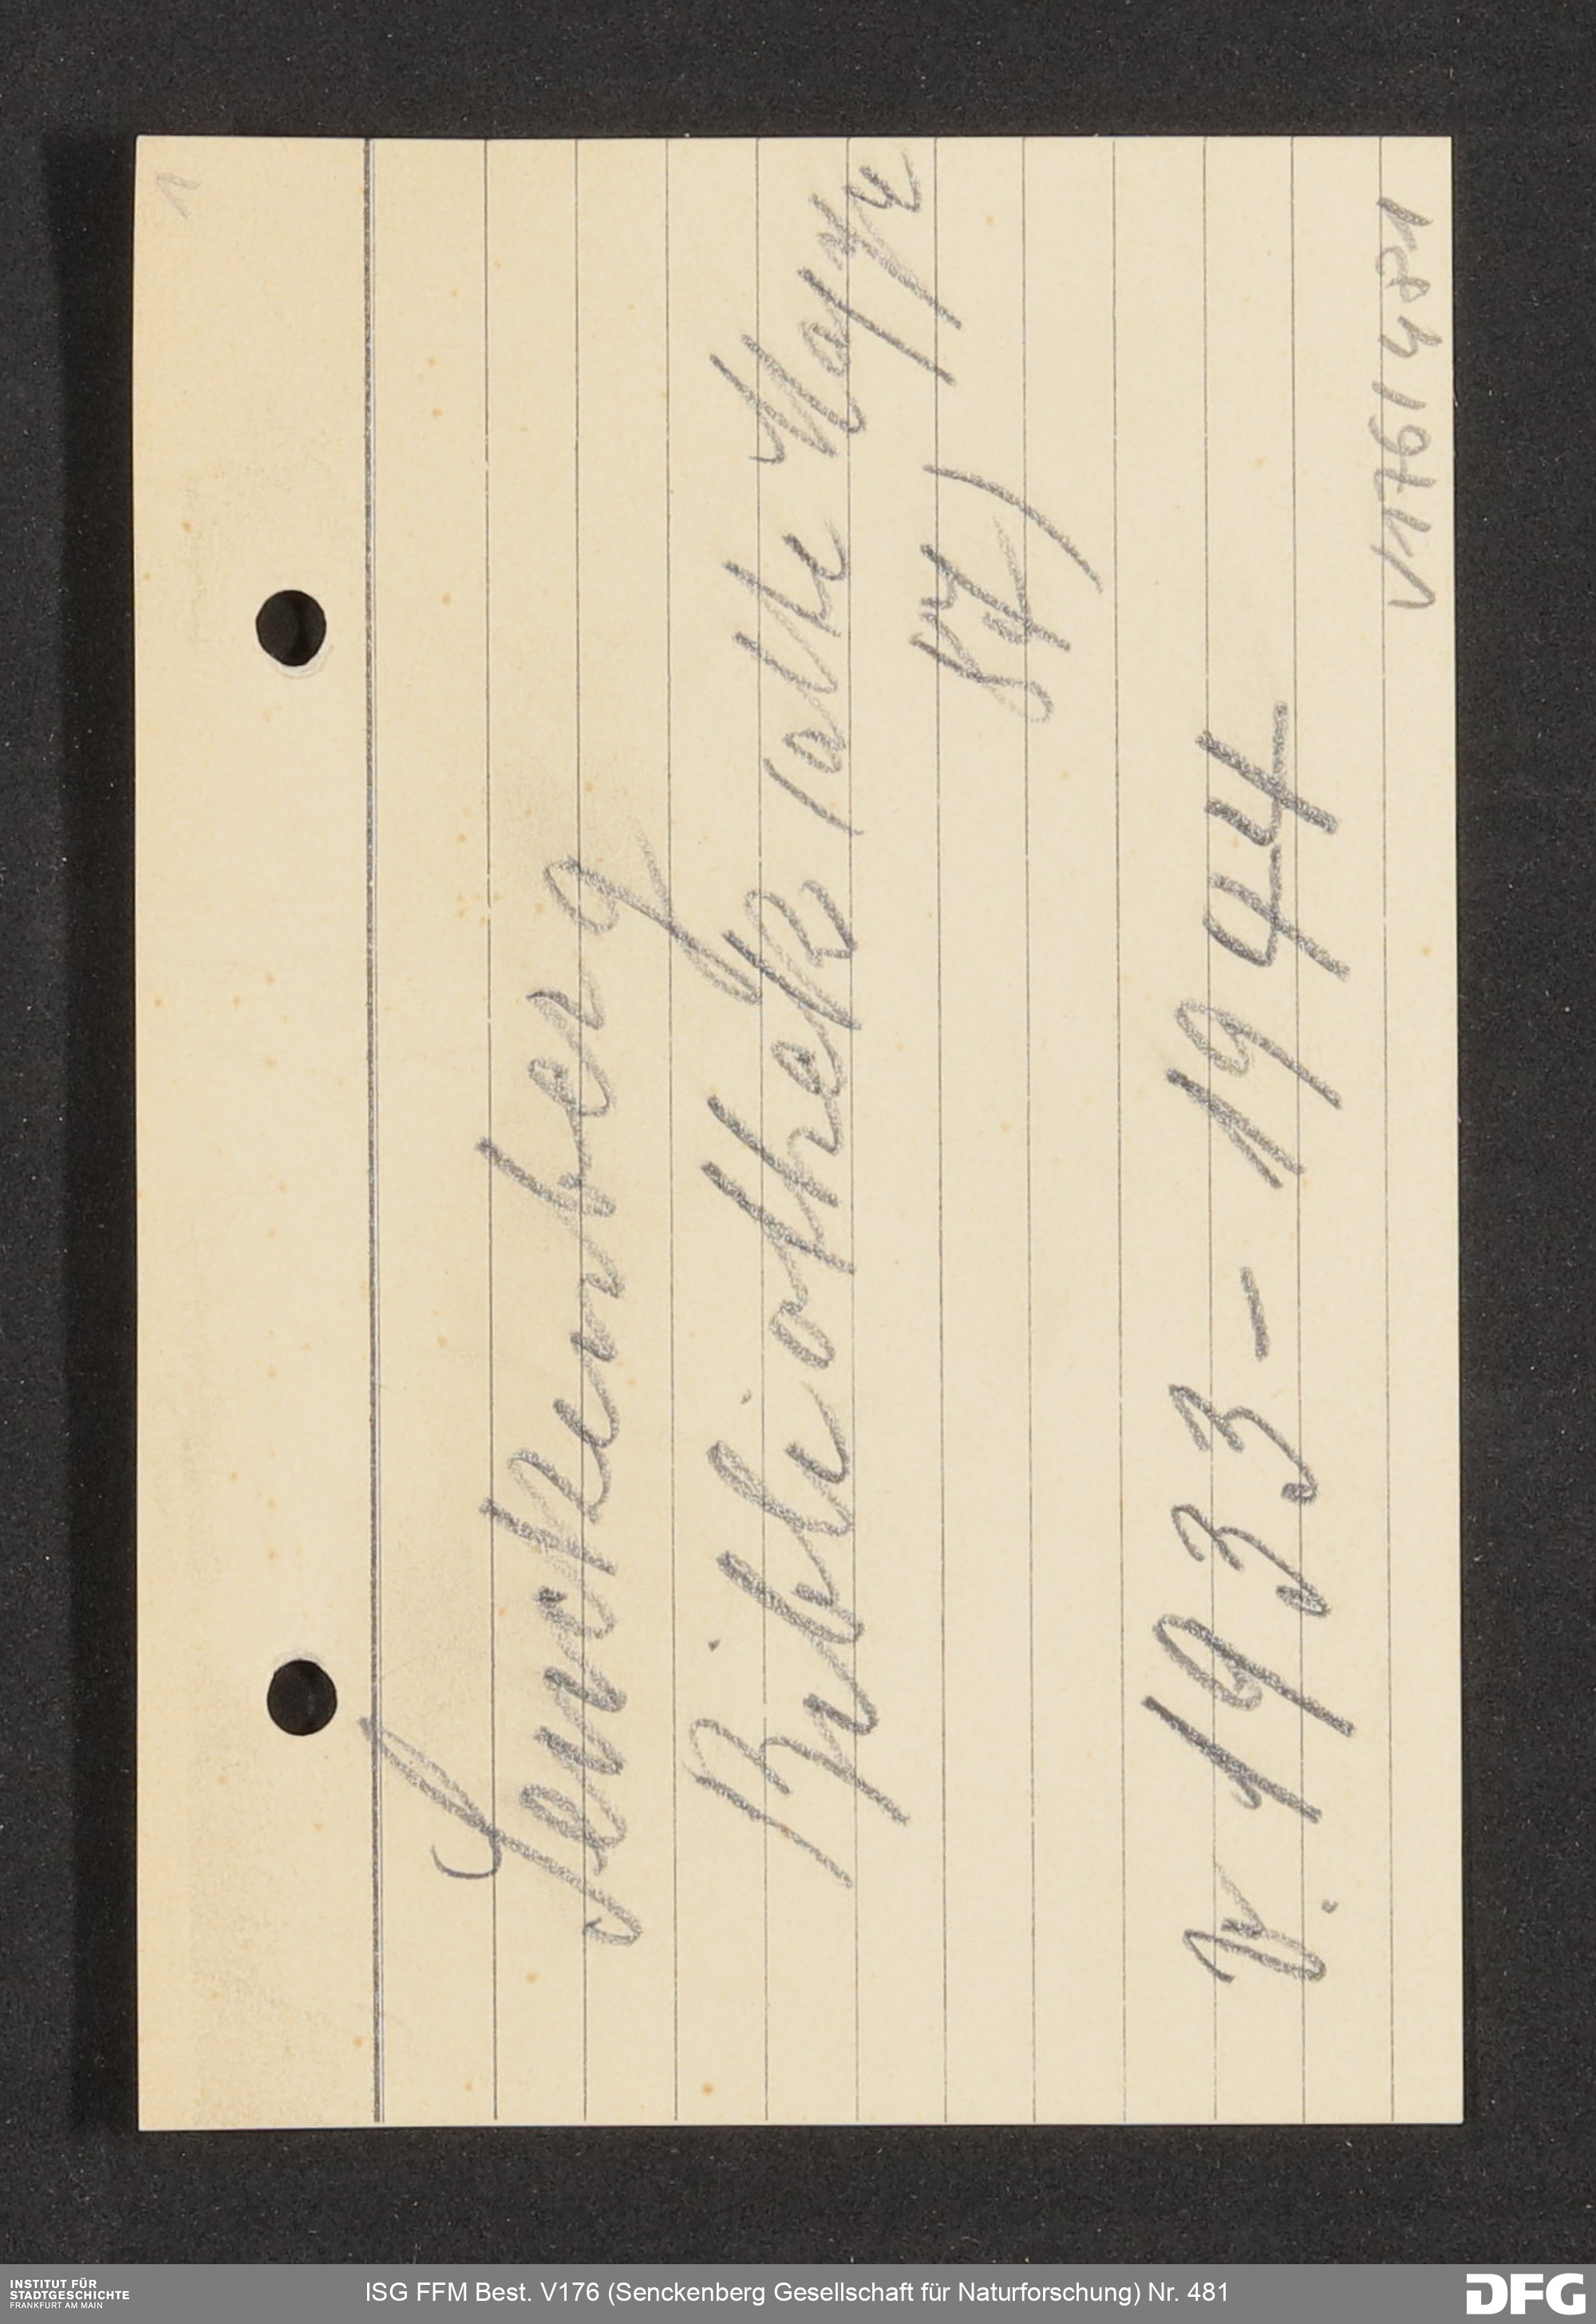 Senckenberg
Bibliothek (alte Mappe
87)
v. 1933-1944
1
INSTITUT FÜR
STADTGESCHICHTE
FRANKFURT AM MAIN
ISG FFM Best. V176 (Senckenberg Gesellschaft für Naturforschung) Nr. 481
DFG